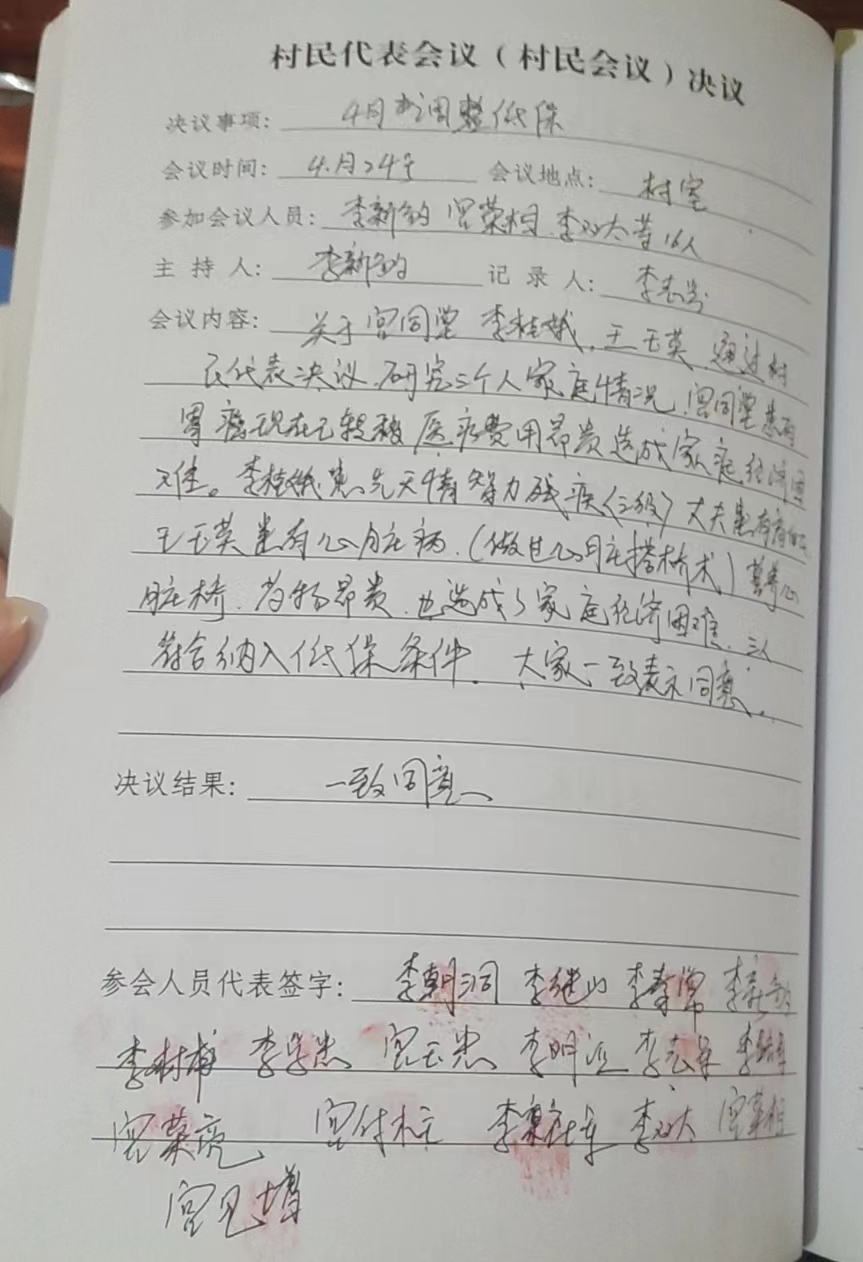 村民代表会议（村民会议）决议
决议事项： 4月份调整低保
会议时间： 4.月24号 会议地点： 村室
参加会议人员： 李新 宫荣相.李双大等16人
主持人： 李新 记录人： 李志
会议内容： 关于宫同堂 李桂娥.王玉英.通过村
民代表决议.研究三个人家庭情况.宫同堂患有
胃癌现在已转移 医疗费用昂贵造成家庭经济困
难。李桂娥患先天情智力残疾〈二级〉丈夫患有
王玉英患有心脏病.(做过心脏搭桥术)
脏桥.药物昂贵.也造成了家庭经济困难.三人
符合纳入低保条件.大家一致表示同意.
决议结果： 一致同意
参会人员代表签字： 李朝洞 李继山 李 李新
李村甫 李学忠 宫玉忠 李明 李志 李
宫荣亮 宫付 李 李双大 宫荣相
宫见增